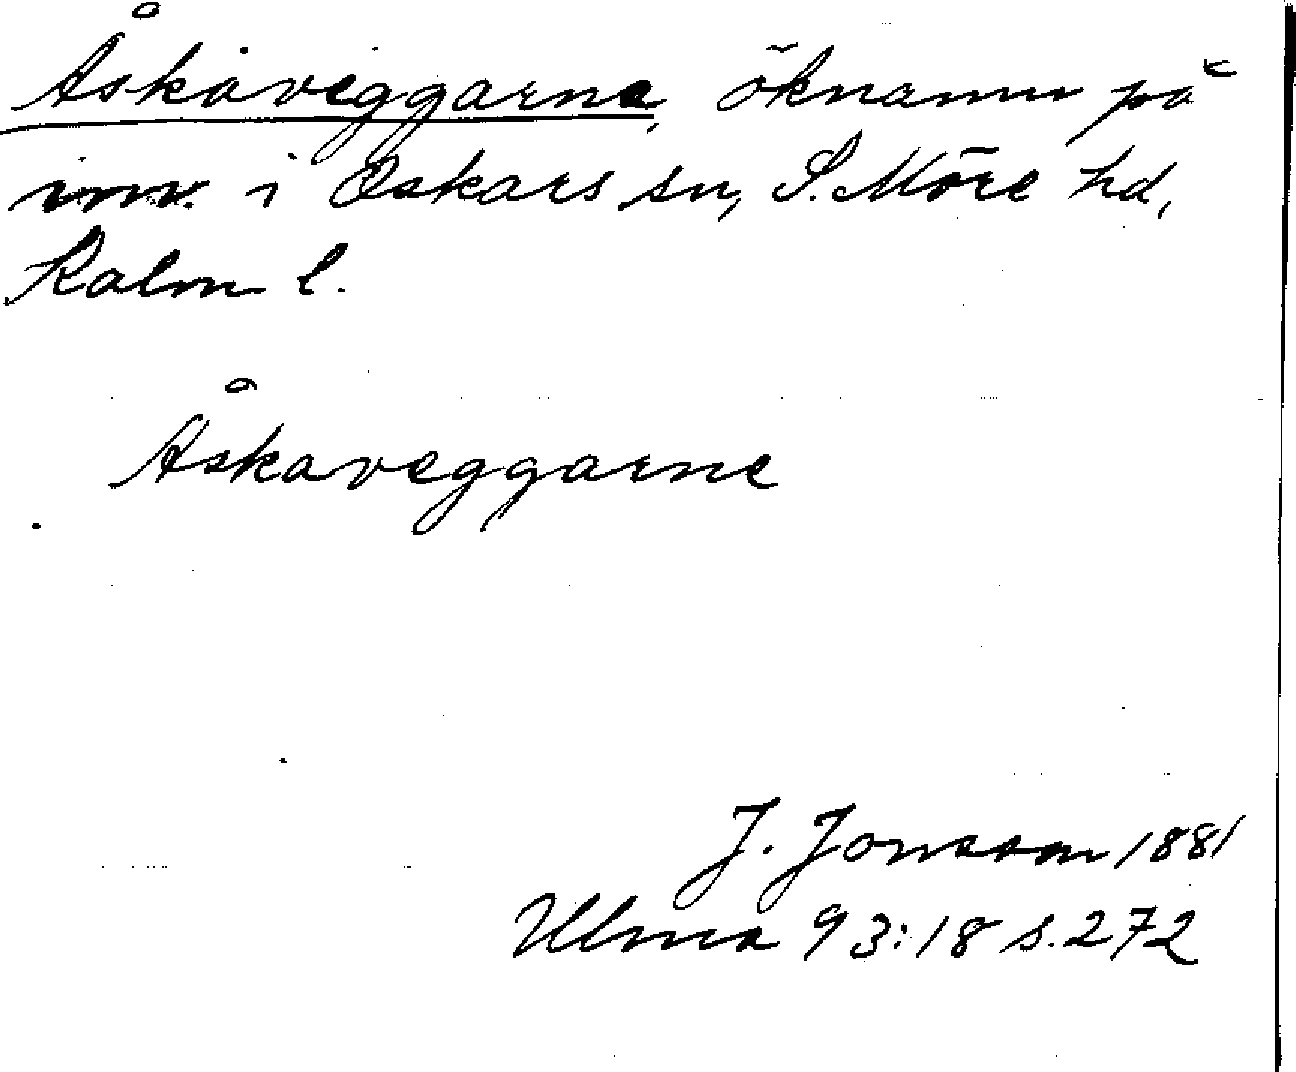 Åskaveggarne, öknamn på
inv. i Oskars sn, S. Möre hd,
Kalm l.
Åskaveggarne
J. Jonsson 1881
Ulma 93:18 s. 272